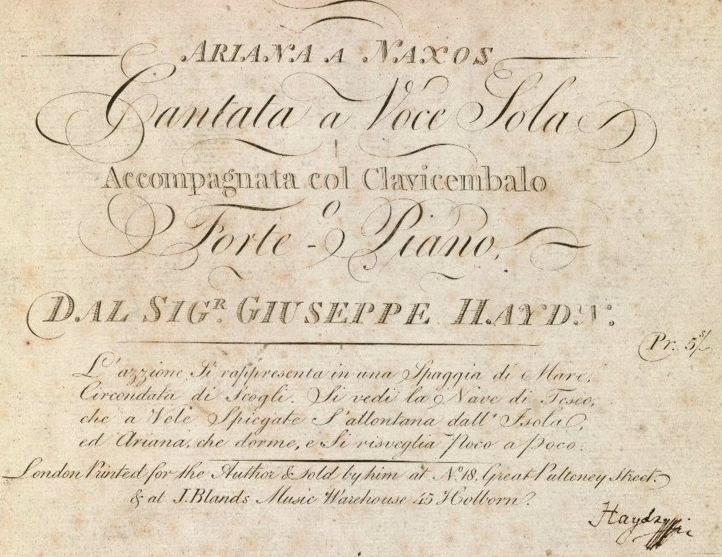 ARIANA A NAXOS
Cantata a Voce Sola
Accompagnata col Clavicembalo
o
Forte-Piano,
DAL SIG.R GIUSEPPE HAYDN.
Pr. 5s/
L'azzione Si rappresenta in una Spaggia di Mare,
Circondata di Scogli. Si vedi la Nave di Teseo,
che a Vele Spiegate S'allontana dall' Isola,
ed Ariana, che dorme, e Si risveglia Poco a Poco.
London Printed for the Author & Sold by him at No. 18, Great Pulteney Street.
& at J. Blands Music Warehouse 45 Holborn.